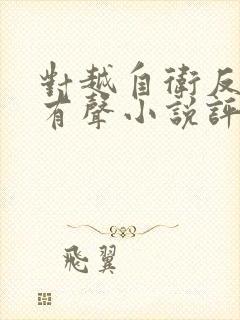 對越自衛反
有聲小說評
飛翼